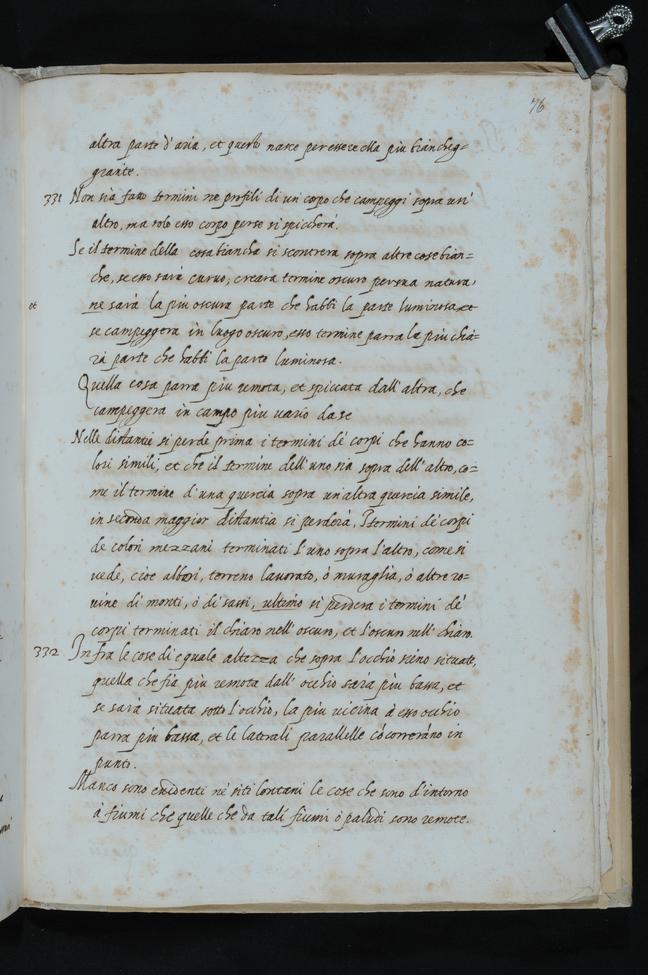 76
altra parte d'aria, et questo nasce per essere ella più biancheg=
giante.
331 Non sia fatto termini ne profili di un corpo che campeggi sopra un'
altro, ma solo esso corpo per se si spiccherà.
Se il termine della cosa bianca si scontrera sopra altre cose bian=
che, se esso sarà curuo, creara termine oscuro per sua natura,
et ne sarà la più oscura parte che habbi la parte luminosa et
se campeggera in luogo oscuro, esso termine parra la più chia=
ra parte che habbi la parte luminosa.
Quella cosa parra piu remota, et spiccata dall' altra, che
campeggera in campo piu vario da se
Nelle distantie si perde prima i termini dé corpi che hanno co=
lori simili, et che il termine dell' uno sia sopra dell' altro, co=
me il termine d'una quercia sopra un'altra quercia simile,
in seconda maggior distantia si perderà, I termini de corpi
de colori mezzani terminati l'uno sopra l'altro, come si
uede, cioe albori, terreno lauorato, ò muraglia, ò altre ro=
uine di monti, ò di sassi, ultimo si perdera i termini de'
corpi terminati il chiaro nell' oscuro, et l'oscuro nell' chiaro.
332 In fra le cose di equale altezza che sopra l'occhio sieno situate,
quella che fia più remota dall' occhio sarà più bassa, et
se sarà situata sotto l'occhio, la piu uicina à esso occhio
parra più bassa, et le laterali parallelle cócorreráno in
punto.
Manco sono euidenti né siti lontani le cose che sono d'intorno
à fiumi che quelle che da tali fiumi ò paludi sono remote.